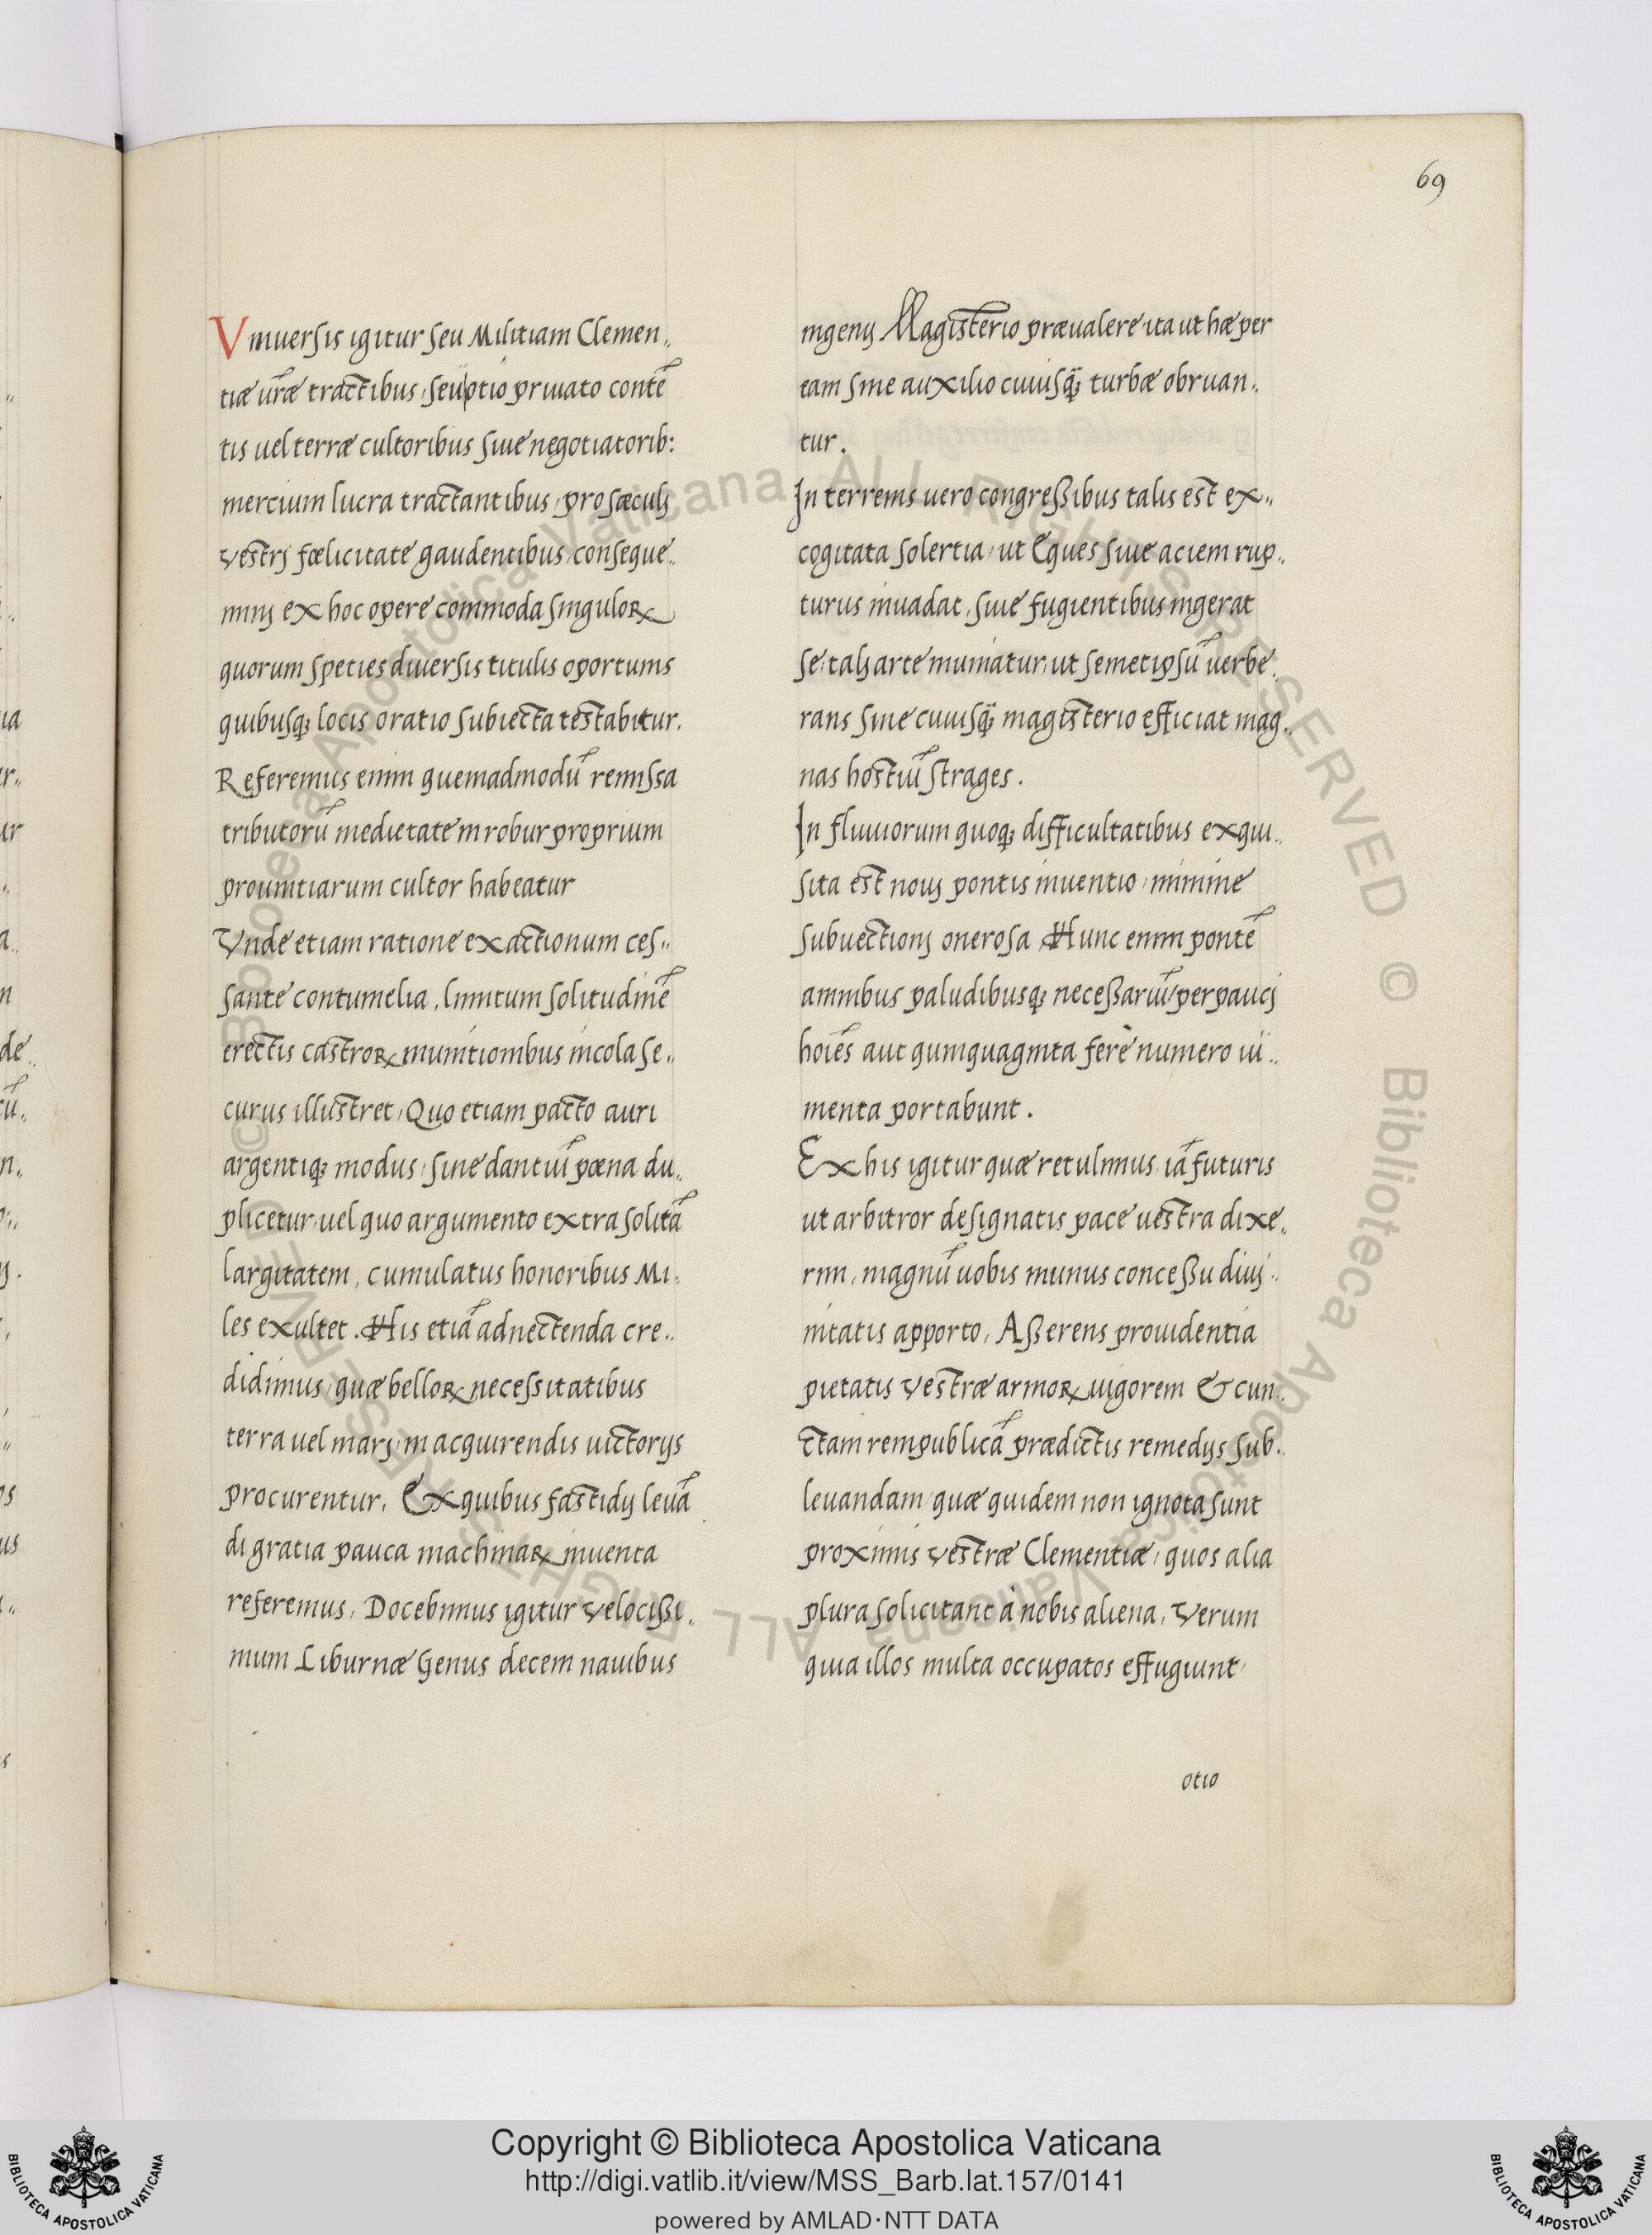 69
Vniuersis igitur seu Militiam Clemen„
tiæ ur̃æ tractibus, seu ptio priuato contẽ
tis uel terræ cultoribus siue negotiatorib:
mercium lucra tractantibus, pro sæculj
vestrj fœlicitate gaudentibus, conseque„
mini ex hoc opere commoda singuloꝝ
quorum species diuersis titulis oportunis
quibusq; locis oratio subiecta testabitur.
Referemus enim quemadmodũ remissa
tributorũ medietate in robur proprium
prouintiarum cultor habeatur
Vnde etiam ratione exactionum ces„
sante contumelia, limitum solitudinẽ
erectis castroꝝ munitionibus incola se„
curus illustret, Quo etiam pacto auri
argentiq; modus, sine dantiũ pœna du„
plicetur, uel quo argumento extra solitã
largitatem, cumulatus honoribus Mi„
les exultet. His etiã adnectenda cre„
didimus, quæ belloꝝ necessitatibus
terra uel marj, in acquirendis uictorijs
procurentur, Ex quibus fastidij leuã
di gratia pauca machinaꝝ inuenta
referemus, Docebimus igitur velocissi„
mum Liburnæ Genus decem nauibus
ingenij Magisterio præualere, ita ut hæ per
eam sine auxilio cuiusq̃; turbæ obruan„
tur.
In terrenis uero congressibus talis est ex„
cogitata solertia, ut Eques siue aciem rup„
turus inuadat, siue fugientibus ingerat
se, talj arte muniatur, ut semetipsũ uerbe„
rans sine cuiusq̃; magisterio efficiat mag„
nas hostiũ strages.
In fluuiorum quoq; difficultatibus exqui„
sita est nouj pontis inuentio, minime
subuectionj onerosa Hunc enim pontẽ
amnibus paludibusq; necessariũ, perpaucj
hoĩes aut quinquaginta ferè numero iũ„
menta portabunt.
Ex his igitur quæ retulimus, iã futuris
ut arbitror designatis pace uestra dixe„
rim, magnũ uobis munus concessu diuj„
nitatis apporto, Asserens prouidentia
pietatis vestræ armoꝝ uigorem & cun„
ctam rempublicã prædictis remedijs sub„
leuandam, quæ quidem non ignota sunt
proximis vestræ Clementiæ, quos alia
plura solicitant à nobis aliena, Verum
quia illos multa occupatos effugiunt,
otio
© Biblioteca Apostolica Vaticana ALL RIGHTS RESERVED © Biblioteca Apostolica Vaticana ALL RIGHTS RESERVED
Copyright © Biblioteca Apostolica Vaticana
http://digi.vatlib.it/view/MSS_Barb.lat.157/0141
powered by AMLAD·NTT DATA
BIBLIOTECA APOSTOLICA VATICANA
BIBLIOTECA APOSTOLICA VATICANA